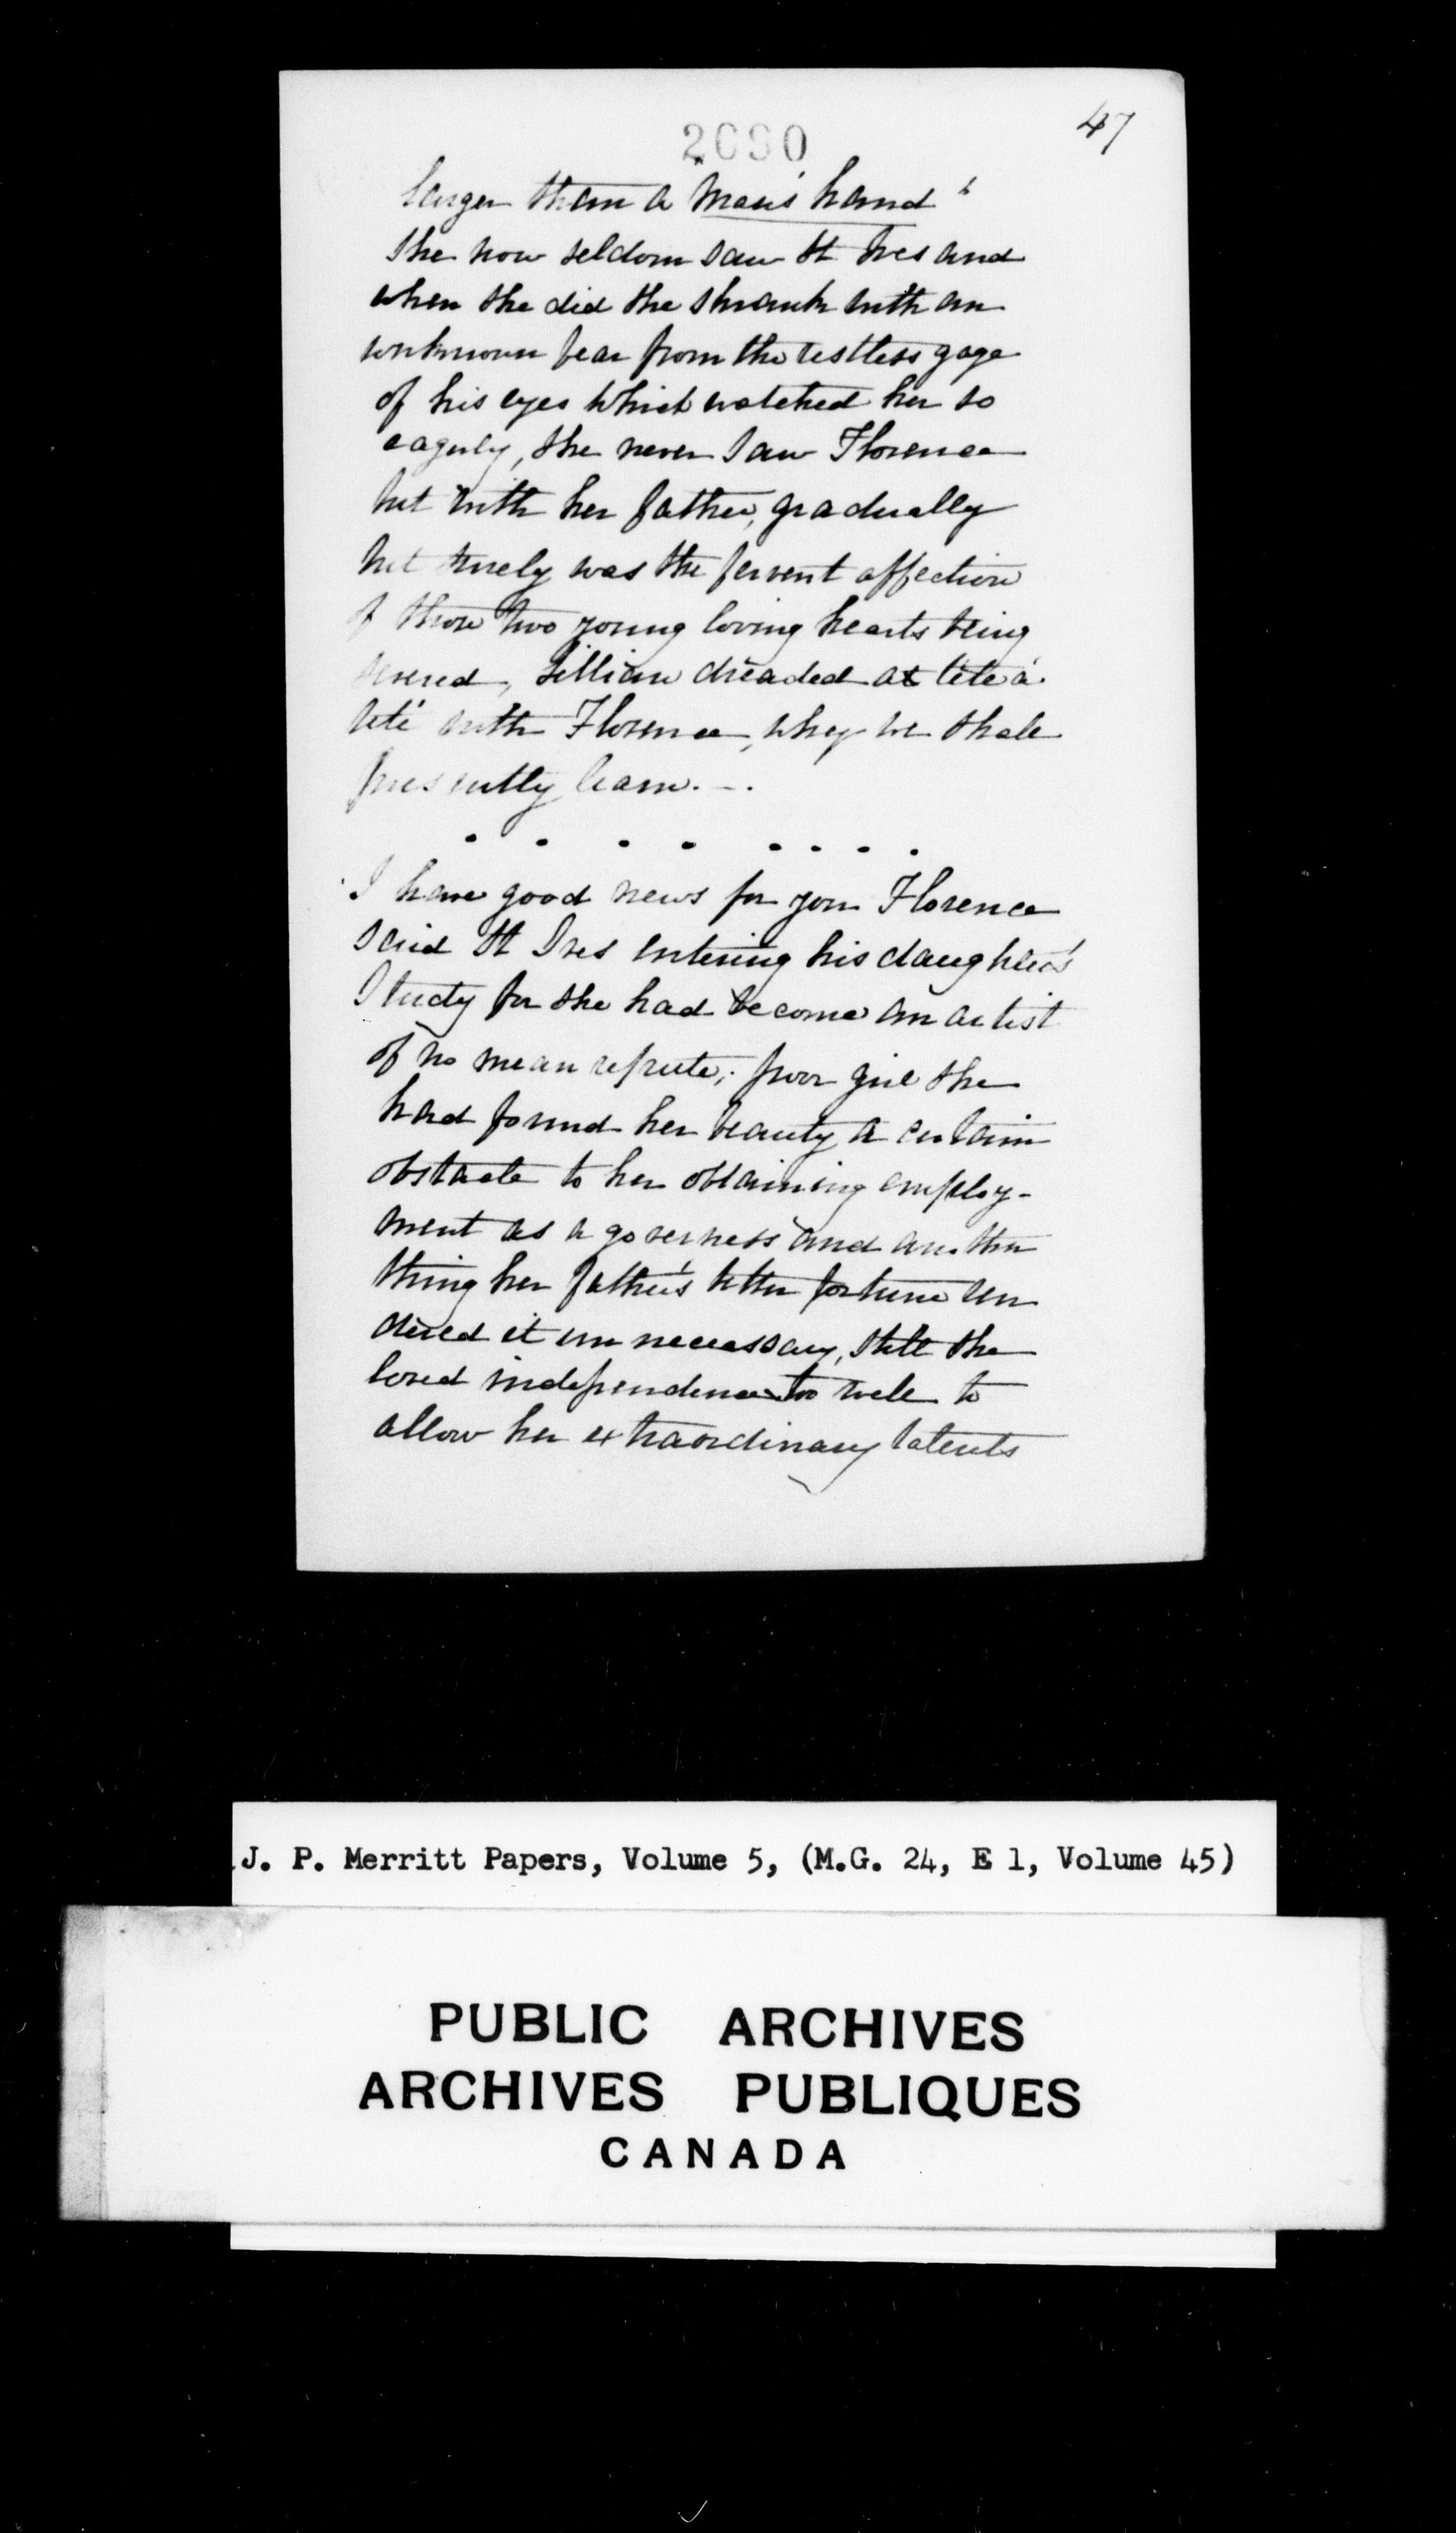 47
larger than a man's hand"
She now seldom saw St Ives and
when she did she shrank with an
unknown fear from the restless gaze
of his eyes which watched her so
eagerly, she never saw Florence
but with her father, gradually
but surely was the fervent affection
of those two young loving hearts being
severed, Lillian dreaded a tete a
tete with Florence, why we shall
presently learn. –.
. . . . . . . .
I have good news for you Florence
said St Ives entering his daughter's
Study for she had become an artist
of no mean repute; poor girl she
had found her beauty a certain
obstacle to her obtaining employ-
ment as a governess and another
thing her father's better fortune ren
dered it unnecessary, still she
loved independence too well to
allow her extraordinary talents
J. P. Merritt Papers, Volume 5, (M.G. 24, E 1, Volume 45)
PUBLIC ARCHIVES
ARCHIVES PUBLIQUES
CANADA